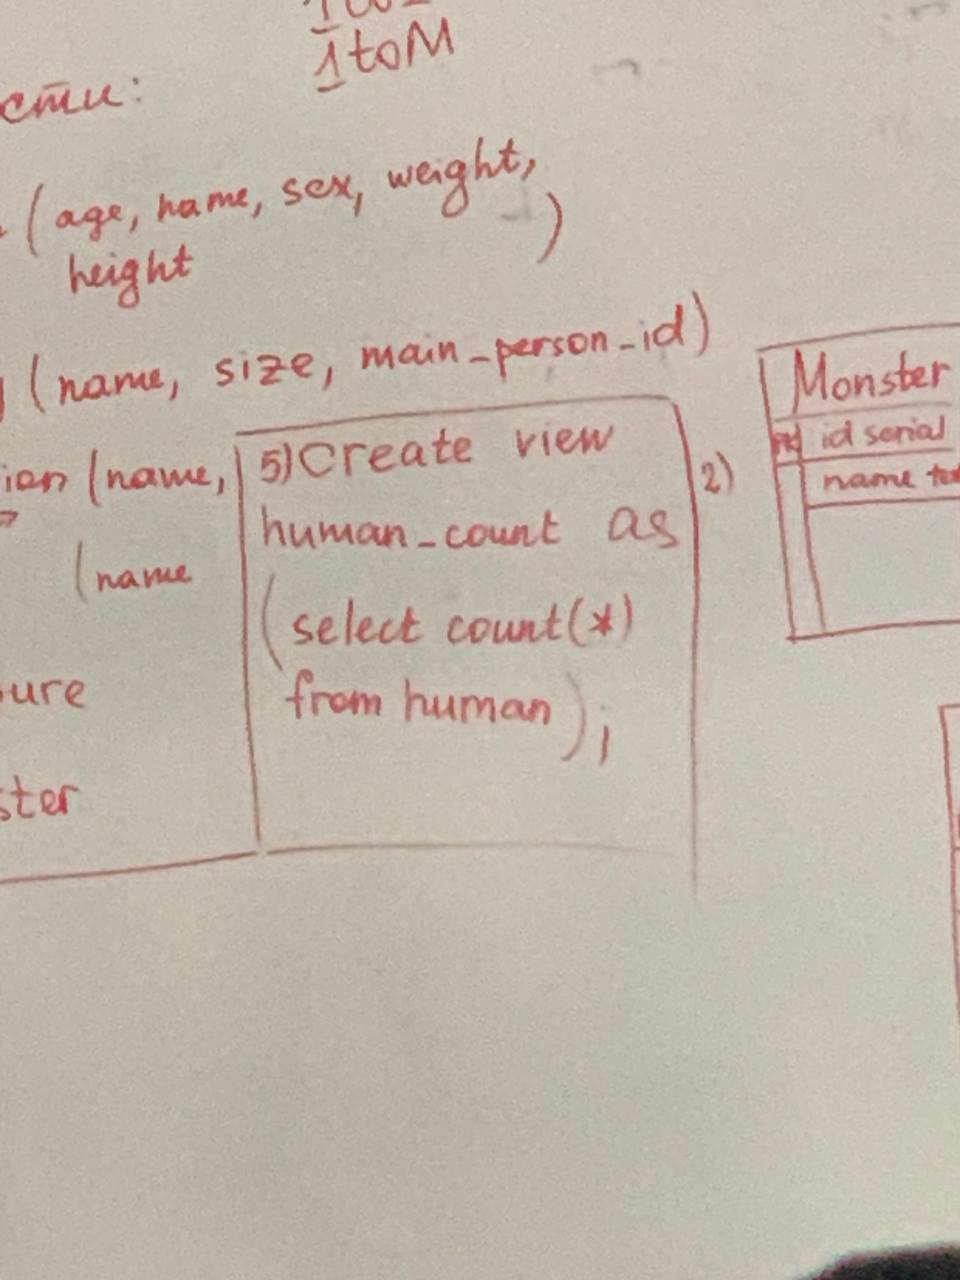 1toM
сти:
(age, name, sex, weight,
height)
(name, size, main_person_id)
(name,
(name
5) Create view
human_count as
(select count(*)
from human);
2)
Monster
id serial
name